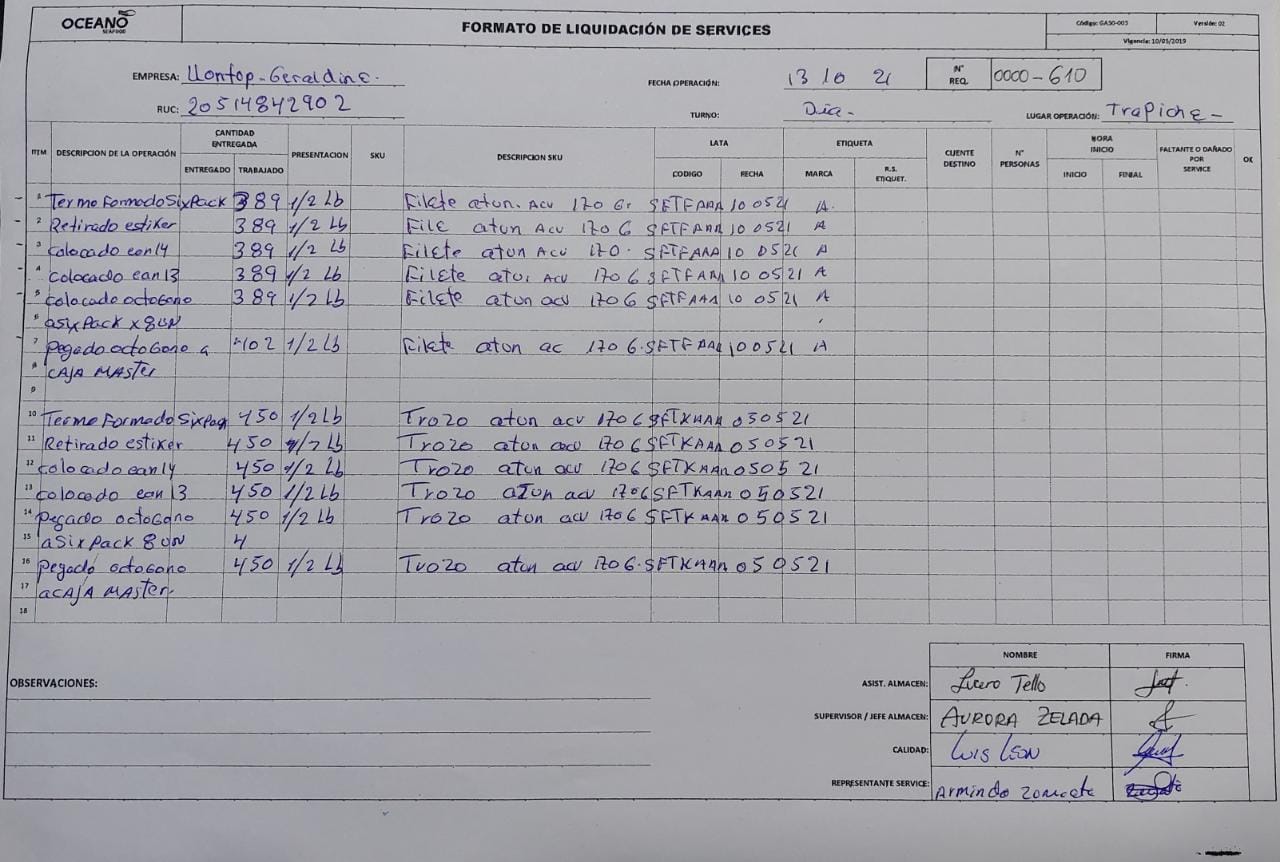 OCEANO
SEAFOOD
FORMATO DE LIQUIDACIÓN DE SERVICES
Código: GASO-003 Versión: 02
Vigencia: 10/05/2019
EMPRESA: Llontop-Geraldine.
FECHA OPERACIÓN: 13 10 21
N° REQ. 0000-610
RUC: 20514842902
TURNO: Día-
LUGAR OPERACIÓN: Trapiche-
ITEM DESCRIPCION DE LA OPERACIÓN CANTIDAD ENTREGADA ENTREGADO TRABAJADO PRESENTACION SKU DESCRIPCION SKU LATA CODIGO FECHA ETIQUETA MARCA R.S. ETIQUET. CLIENTE DESTINO N° PERSONAS HORA INICIO INICIO FINIAL FALTANTE O DAÑADO POR SERVICE OK
1 Termo Formado SixPack 389 1/2 Lb Filete atun. Acv 170 Gr SFTFAAA 10 0521 A.
2 Retirado estiker 389 1/2 Lb File atun Acv 170 G SFTFAAA 10 0521 A
3 Colocado ean14 389 1/2 Lb Filete atun Acv 170. SFTFAAA 10 0521 A
4 Colocado ean13 389 1/2 Lb Filete atu. Acv 170 G SFTFAAA 10 0521 A
5 Colocado octogono 389 1/2 Lb Filete atun acv 170 G SFTFAAA 10 0521 A
6 asixPack x 8UN
7 pegado octogono a 402 1/2 Lb Filete atun ac 170 G. SFTFAAA 100521 A
8 CAJA MASTER
9
10 Termo Formado SixPaq 450 1/2 Lb Trozo atun acv 170 G SFTKAAA 050521
11 Retirado estiker 450 1/2 Lb Trozo atun acv 170 G SFTKAAA 050521
12 colocado ean14 450 1/2 Lb Trozo atun acv 170 G SFTKAAA 050521
13 colocado ean13 450 1/2 Lb Trozo atun acv 170G SFTKAAA 050521
14 pegado octogono 450 1/2 Lb Trozo atun acv 170 G SFTKAAA 050521
15 a Six Pack 8 UN 4
16 pegado octogono 450 1/2 Lb Trozo atun acv 170 G. SFTKAAA 050521
17 a CAJA MASTER.
18
NOMBRE FIRMA
OBSERVACIONES:
ASIST. ALMACEN: Lucero Tello
SUPERVISOR / JEFE ALMACEN: AURORA ZELADA
CALIDAD: LUIS LEON
REPRESENTANTE SERVICE: Armindo